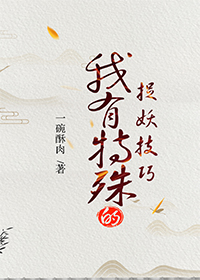 我有特殊的
捉妖技巧
一碗酥肉/著